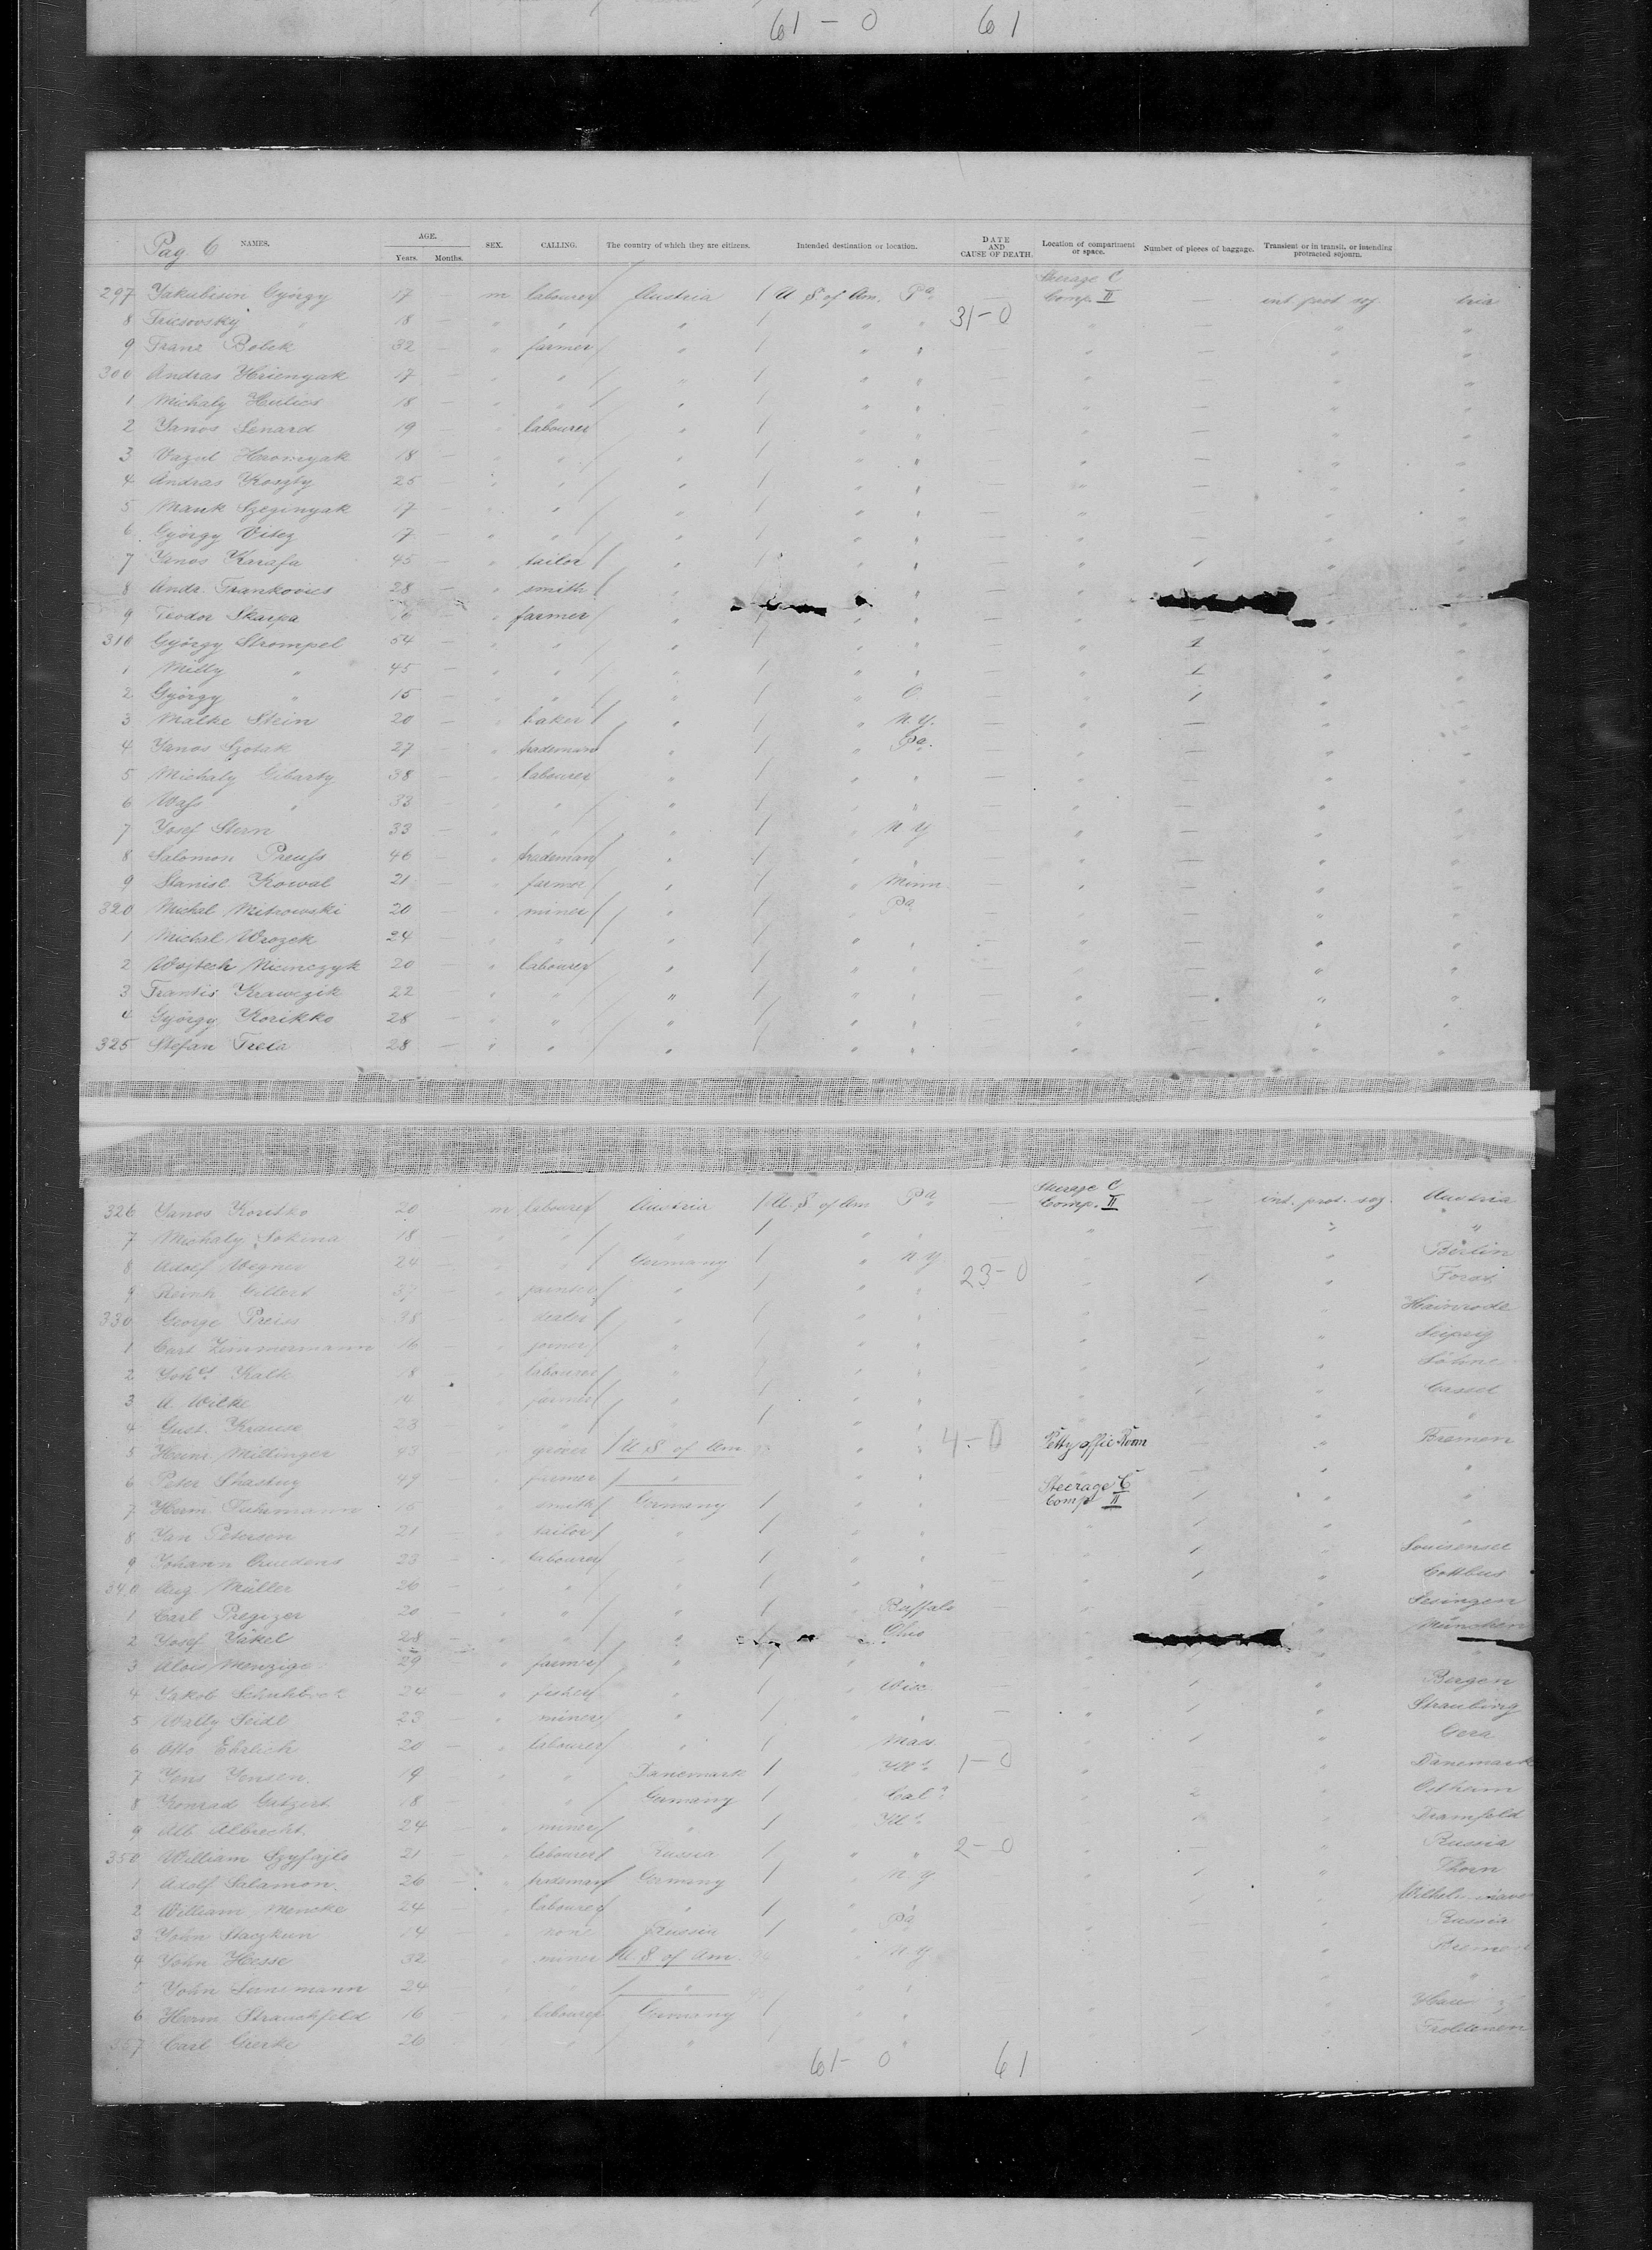 61 - 0 61
Pag 6 NAMES. AGE. Years. Months. SEX. CALLING. The country of which they are citizens. Intended destination or location. DATE AND CAUSE OF DEATH. Location of compartment or space. Number of pieces of baggage. Transient or in transit, or intending protracted sojourn.
297 Yakubisin György 17 — m labourer Austria / U. S. of Am. Pa — Steerage C Comp. II — int. prot. soj.
8 Fricsovsky " 18 — " " " / " " 31-0 " — " "
9 Franz Bobek 32 — " farmer " / " " " — " "
300 Andras Hrienyak 17 — " " " / " " — " — " "
1 Michaly Hulics 18 — " " " / " " — " — " "
2 Yanos Lenard 19 — " labourer " / " " — " — " "
3 Vazul Hromyak 18 — " " " / " " — " — " "
4 Andras Koszty 25 — " " " / " " — " — " "
5 Mank Szeginyak 17 — " " " / " " — " — " "
6 György Vitez 17 — " " " / " " — " — " "
7 Yanos Karafa 45 — " tailor " / " " — " 1 " "
8 Andr. Frankovics 28 — " smith " " " — "
9 Teodor Skarpa — " farmer " / " " — " "
310 György Strompel 54 — " " " / " " — " 1 " "
1 Milly " 45 — " " " / " " — " 1 " "
2 György " 15 — " " " / " O. — " 1 " "
3 Malke Stein 20 — " baker " / " N. Y. — " — " "
4 Yanos Szotak 27 — " trademan " / " Pa. — " — " "
5 Michaly Gibarty 38 — " labourer " / " " — " — " "
6 " 33 — " " " / " " — " — " "
7 Josef Stern 33 — " " " / " N Y — " — " "
8 Salomon Preuss 46 — " trademan " / " " — " — " "
9 Stanisl Kowal 21 — " farmer " / " Minn. — " — " "
320 Michal Mitrowski 20 — " miner " / " Pa — " — " "
1 Michal Wrozek 24 — " " " / " " — " — " "
2 Wojtech Niemczyk 20 — " labourer " / " " — " — " "
3 Frantis Krawczik 22 — " " " / " " — " — " "
4 György Korikko 28 — " " " / " " — " — " "
325 Stefan Trela 28 — " " " / " " — " — " "
326 Yanos Koritko 20 m labourer Austria / U. S. of Am Pa — Steerage C Comp. II — int. prot. soj. Austria
7 Michaly Sokina 18 — " " " / " " " — " "
8 Adolf Wegner 24 — " " Germany / " N Y — " — " Berlin
9 Reinh Gillert 37 — " painter " / " " 23-0 " 1 " Forst
330 George Preiss 38 — " dealer " / " " " — " Hainrode
1 Carl Zimmermann 16 — " joiner " / " " " — " Leipzig
2 Kalk 18 — " labourer " / " " " 1 " Löhne
3 A Wilke 14 — " farmer " / " " " 1 " Cassel
4 Gust. Krause 23 — " " " / " " " — " "
5 Millinger 43 — " grocer / U S of Am " " 4-0 Petty offic Room — " Bremen
6 Peter 47 — " farmer / " " " — " "
7 Herm. Fuhrmann — " smith Germany / " " — Steerage C Comp II 1 " "
8 Jan Petersen 21 — " tailor " / " " — " 1 " "
9 Johann Quedens 23 — " labourer " / " " — " 1 " Louisensee
340 Aug. Müller 26 — " " " / " " — " 1 " Cottbus
1 Carl Pregizer 20 — " " " / " Buffalo — " — " Lesingen
2 Josef Jäkel 28 — " " " / Ohio " München
3 Alois Menzige 29 — " farmer " / " " " "
4 Jakob 24 — " " / " Wisc. — " 1 " Bergen
5 Wally Seidl 23 — " miner " / " " — " 1 " Straubing
6 Otto Ehrlich 20 — " labourer " / " Mass. " 1 " Gera
7 Jens Jensen 19 " " Danemark / " Ills 1-0 " — " Danemark
8 Konrad Gutzert 18 — " " Germany / " Cal. " 2 " Ostheim
9 Alb Albrecht. 24 — " miner " / " Ills " 1 " Dramfeld
350 William Szyfajts 21 — " labourer Russia / " " 2-0 " — " Russia
1 Adolf Salamon. 26 — " trademan Germany / " N. Y " 1 " Thorn
2 William Mencke 24 — " labourer " / " " " 1 "
3 John Staczkun 14 — " none Russia / " Pa " — " Russia
4 John Hesse 32 " miner U S of Am. " N Y " Bremen
5 John 24 " " " " "
6 Herm 16 — " labourer Germany / " " " "
357 Carl Gierke 26 " " 1
61- 0 61